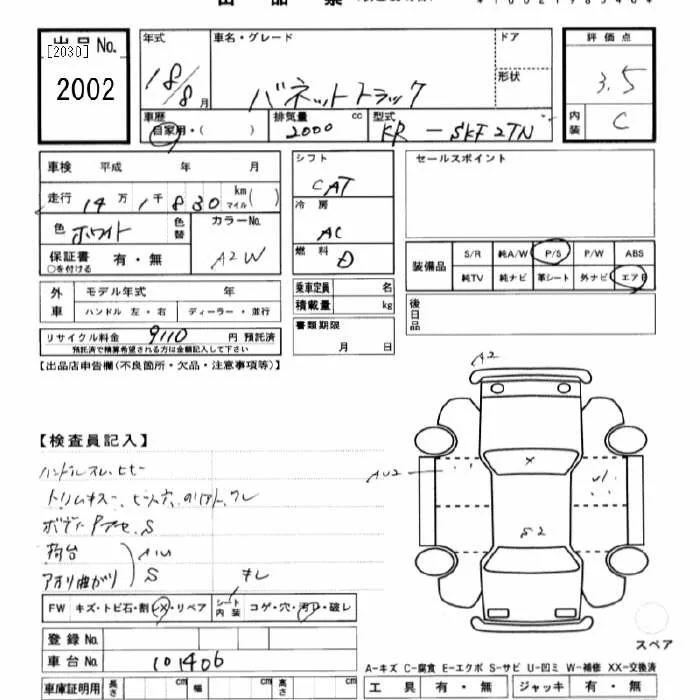 出品票
出品 No.
[2030]
2002
年式
18/8月
車名・グレード
バネットトラック
ドア
形状
評価点
3.5
内装
C
車歴
自家用・( )
排気量 cc
2000
型式
KR-SKF2TN
車検 平成 年 月
走行 14万1千830 km マイル( )
色 ホワイト
色替
カラーNo.
A2W
保証書 有・無
○を付ける
シフト
CAT
冷房
AC
燃料
D
セールスポイント
装備品
S/R 純A/W P/S P/W ABS
純TV 純ナビ 革シート 外ナビ エアB
外車
モデル年式 年
ハンドル 左・右 ディーラー・並行
乗車定員 名
積載量 kg
後日品
リサイクル料金 9110 円 預託済
預託済で精算希望される方は金額記入して下さい
書類期限
月 日
【出品店申告欄(不良箇所・欠品・注意事項等)】
A2
【検査員記入】
ハンドルスレ、ヒビ
トリムキズ、ビス穴、
ボディ サビ S
荷台 A1U
アオリ曲がり S
AU2
X
U1
S2
キレ
FW キズ・トビ石・割・X・リペア
シート内装 コゲ・穴・汚レ・破レ
登録 No.
車台 No. 101406
スペア
A-キズ C-腐食 E-エクボ S-サビ U-凹ミ W-補修 XX-交換済
車庫証明用 長さ cm 幅 cm 高さ cm
工具 有・無 ジャッキ 有・無